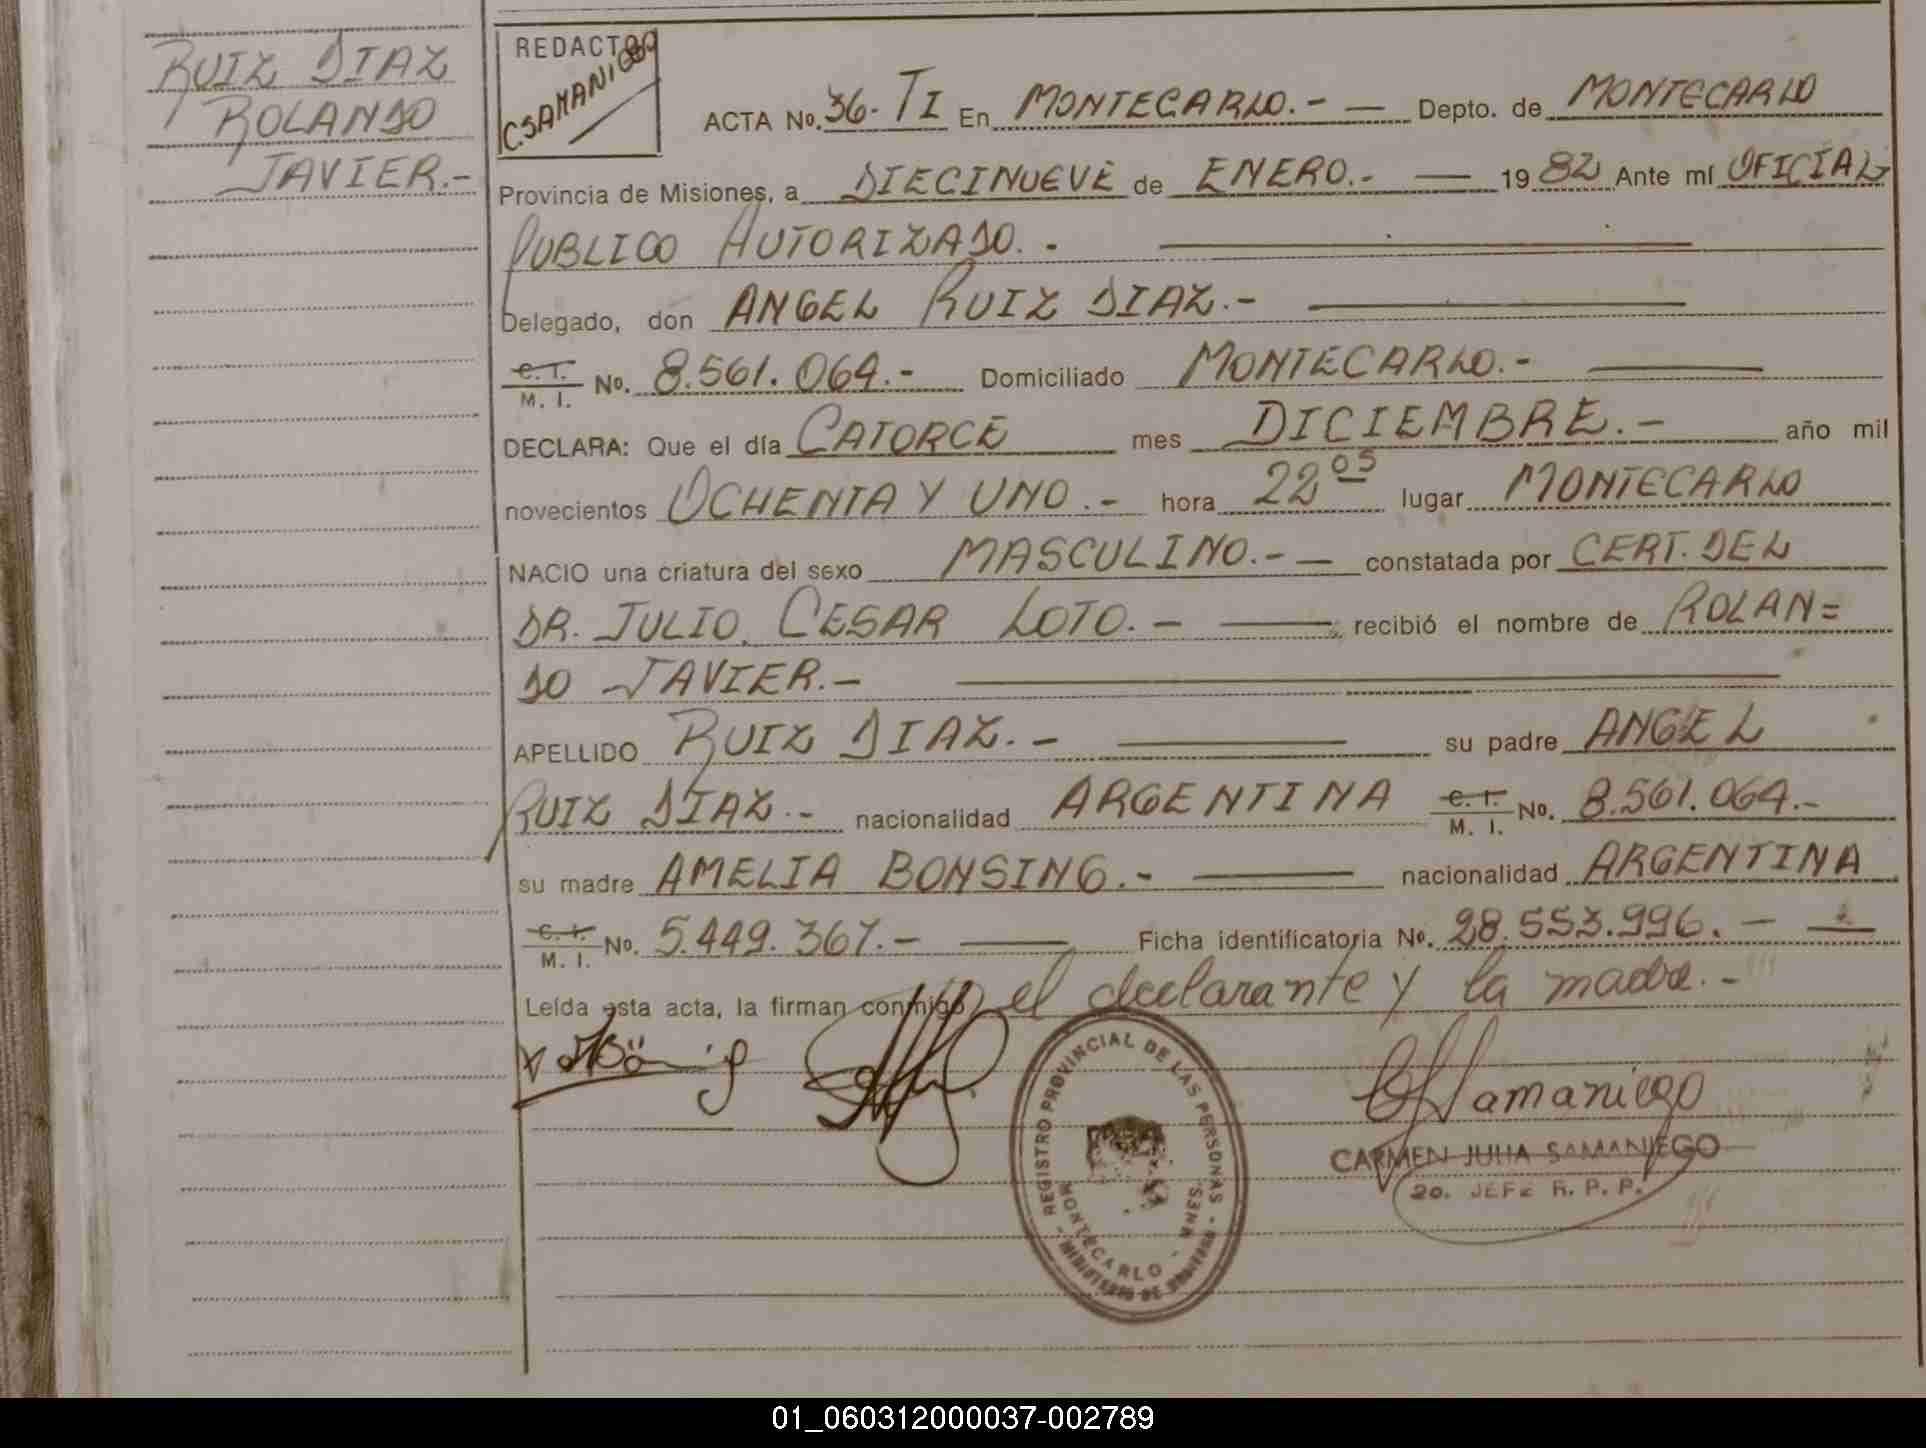 RUIZ DIAZ
ROLANDO
JAVIER.-
REDACTO
C.SAMANIEGO
ACTA No. 36- TI En MONTECARLO.- — Depto. de MONTECARLO
Provincia de Misiones, a DIECINUEVE de ENERO.- — 1982 Ante mí OFICIAL
PUBLICO AUTORIZADO.-
Delegado, don ANGEL RUIZ DIAZ.-
C. I. / M. I. No. 8.561.064.- Domiciliado MONTECARLO.-
DECLARA: Que el día CATORCE mes DICIEMBRE.- año mil
novecientos OCHENTA Y UNO.- hora 22 05 lugar MONTECARLO
NACIO una criatura del sexo MASCULINO.- — constatada por CERT. DEL
DR. JULIO CESAR LOTO.- — recibió el nombre de ROLAN=
DO JAVIER.-
APELLIDO RUIZ DIAZ.- — su padre ANGEL
RUIZ DIAZ.- nacionalidad ARGENTINA C. I. / M. I. No. 8.561.064.-
su madre AMELIA BONSING.- — nacionalidad ARGENTINA
C. I. / M. I. No. 5.449.367.- — Ficha identificatoria No. 28.553.996. -
Leída esta acta, la firman conmigo el declarante y la madre.-
REGISTRO PROVINCIAL DE LAS PERSONAS
MONTECARLO - MNES.
MINISTERIO DE GOBIERNO
CSamaniego
CARMEN JULIA SAMANIEGO
2o. JEFE R. P. P.
01_060312000037-002789